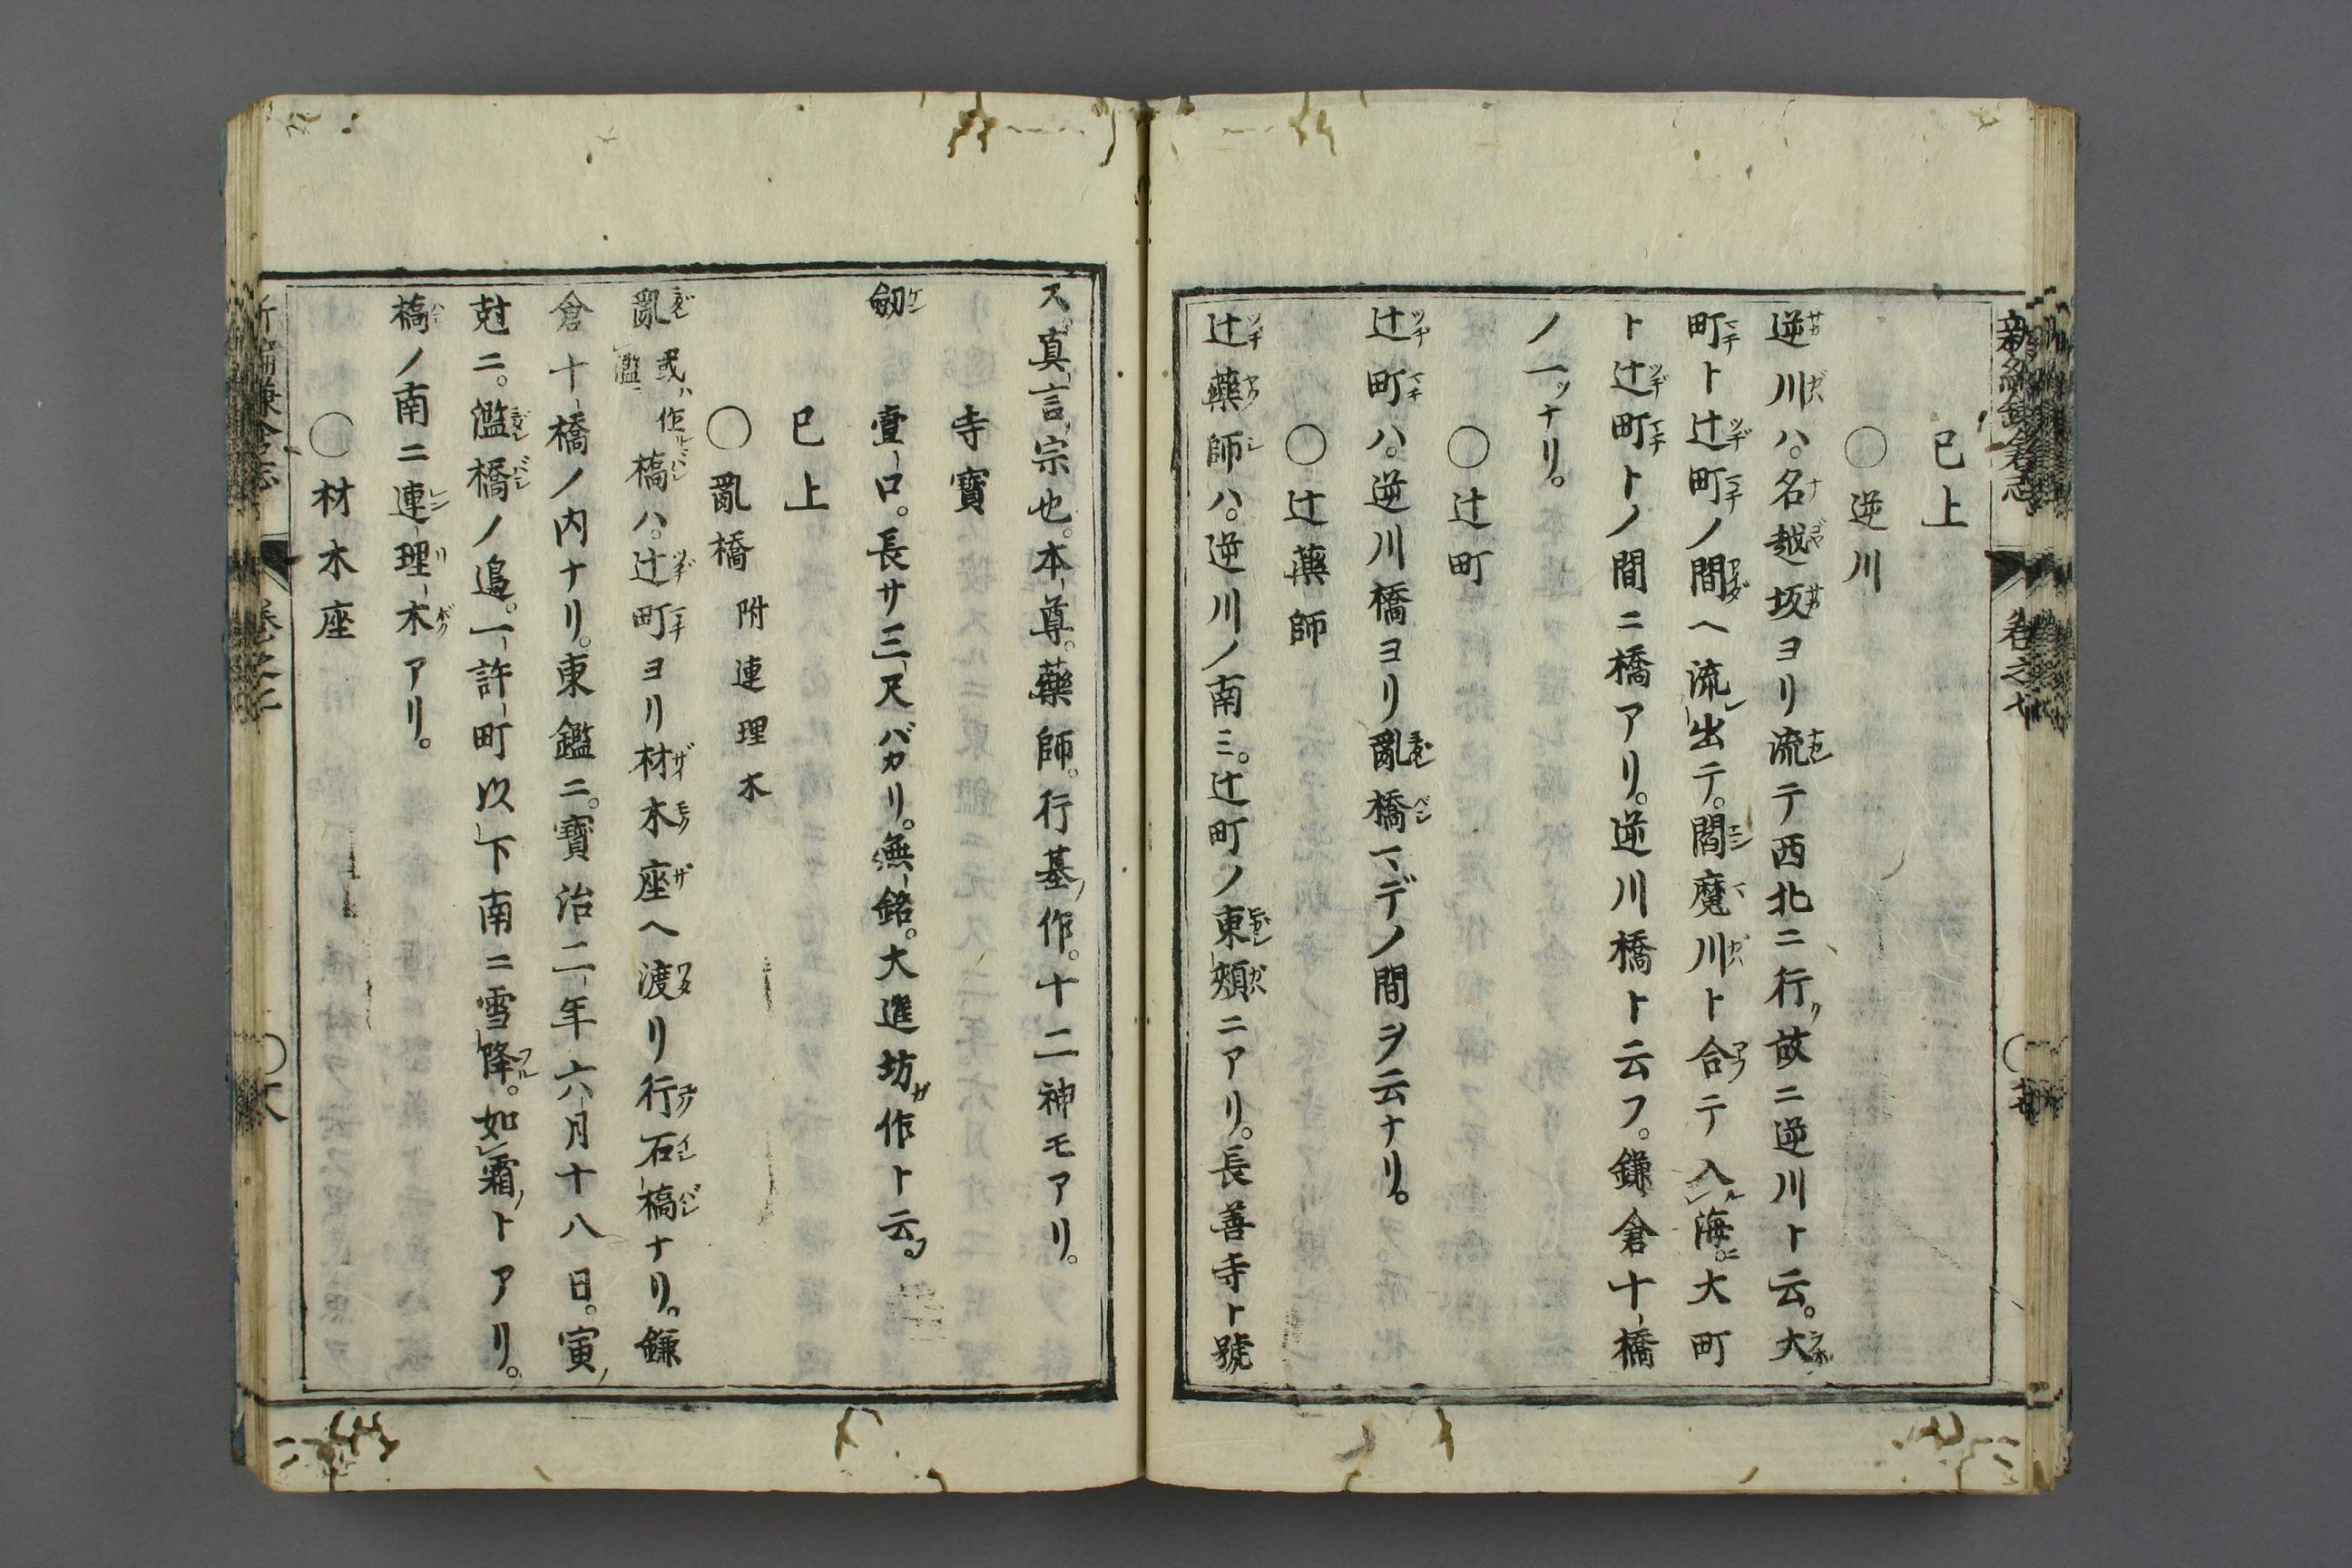 已上
○逆川
逆川ハ。名越坂ヨリ流テ西北ニ行ク故ニ逆川ト云。大
町ト辻町ノ間ヘ流レ出テ。閻魔川ト合テ入ル海ニ。大町
ト辻町トノ間ニ橋アリ。逆川橋ト云フ。鎌倉十橋
ノ一ッナリ。
○辻町
辻町ハ。逆川橋ヨリ亂橋マデノ間ヲ云ナリ。
○辻藥師
辻藥師ハ。逆川ノ南ミ。辻町ノ東頰ニアリ。長善寺ト號
ス。真言宗也。本尊。藥師。行基ノ作。十二神モアリ。
寺寶
劔 壹口。長サ三尺バカリ。無銘。大進坊ガ作ト云フ。
已上
○亂橋 附連理木
亂 或ハ作ル濫 橋ハ。辻町ヨリ材木座ヘ渡リ行石橋ナリ。鎌
倉十橋ノ内ナリ。東鑑ニ。寶治二年六月十八日。寅ノ
尅ニ。濫橋ノ邉。一許町以下南ニ雪降ル。如霜ノトアリ。
橋ノ南ニ連理木アリ。
○材木座